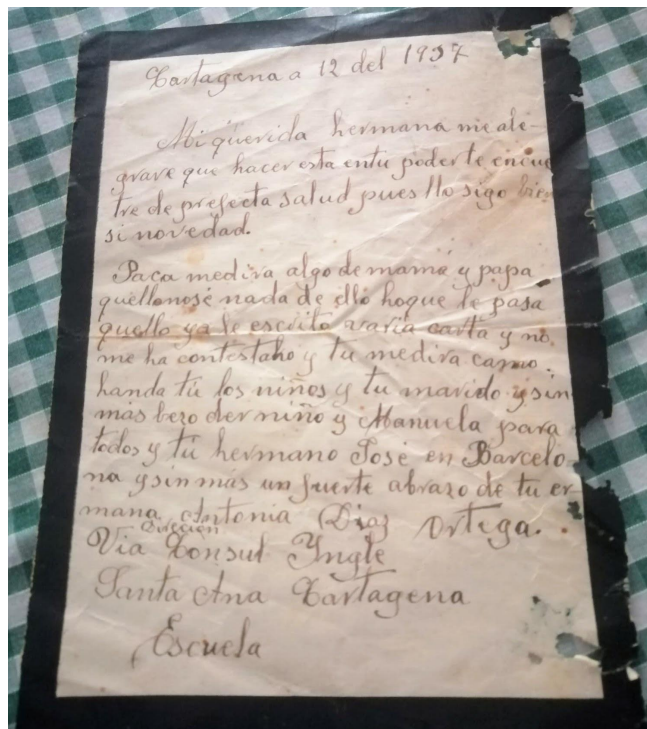 Cartagena a 12 del 1937
Mi querida hermana meale-
grare que hacer esta entu poder te encue
tre de prefecta salud pues llo sigo bie
si novedad.
Paca medira algo de mama y papa
quellonosé nada de ello hoque le pasa
quello ya le escrito varia carta y no
me ha contestaho y tu medira camo
handa tú los niños y tu marido y sin
mas bezo der niño y Manuela para
todos y tu hermano José en Barcelo
na y sin más un fuerte abrazo de tu er
mana Antonia Diaz Ortega.
Direcion
Via Consul Yngle
Santa Ana Cartagena
Escuela